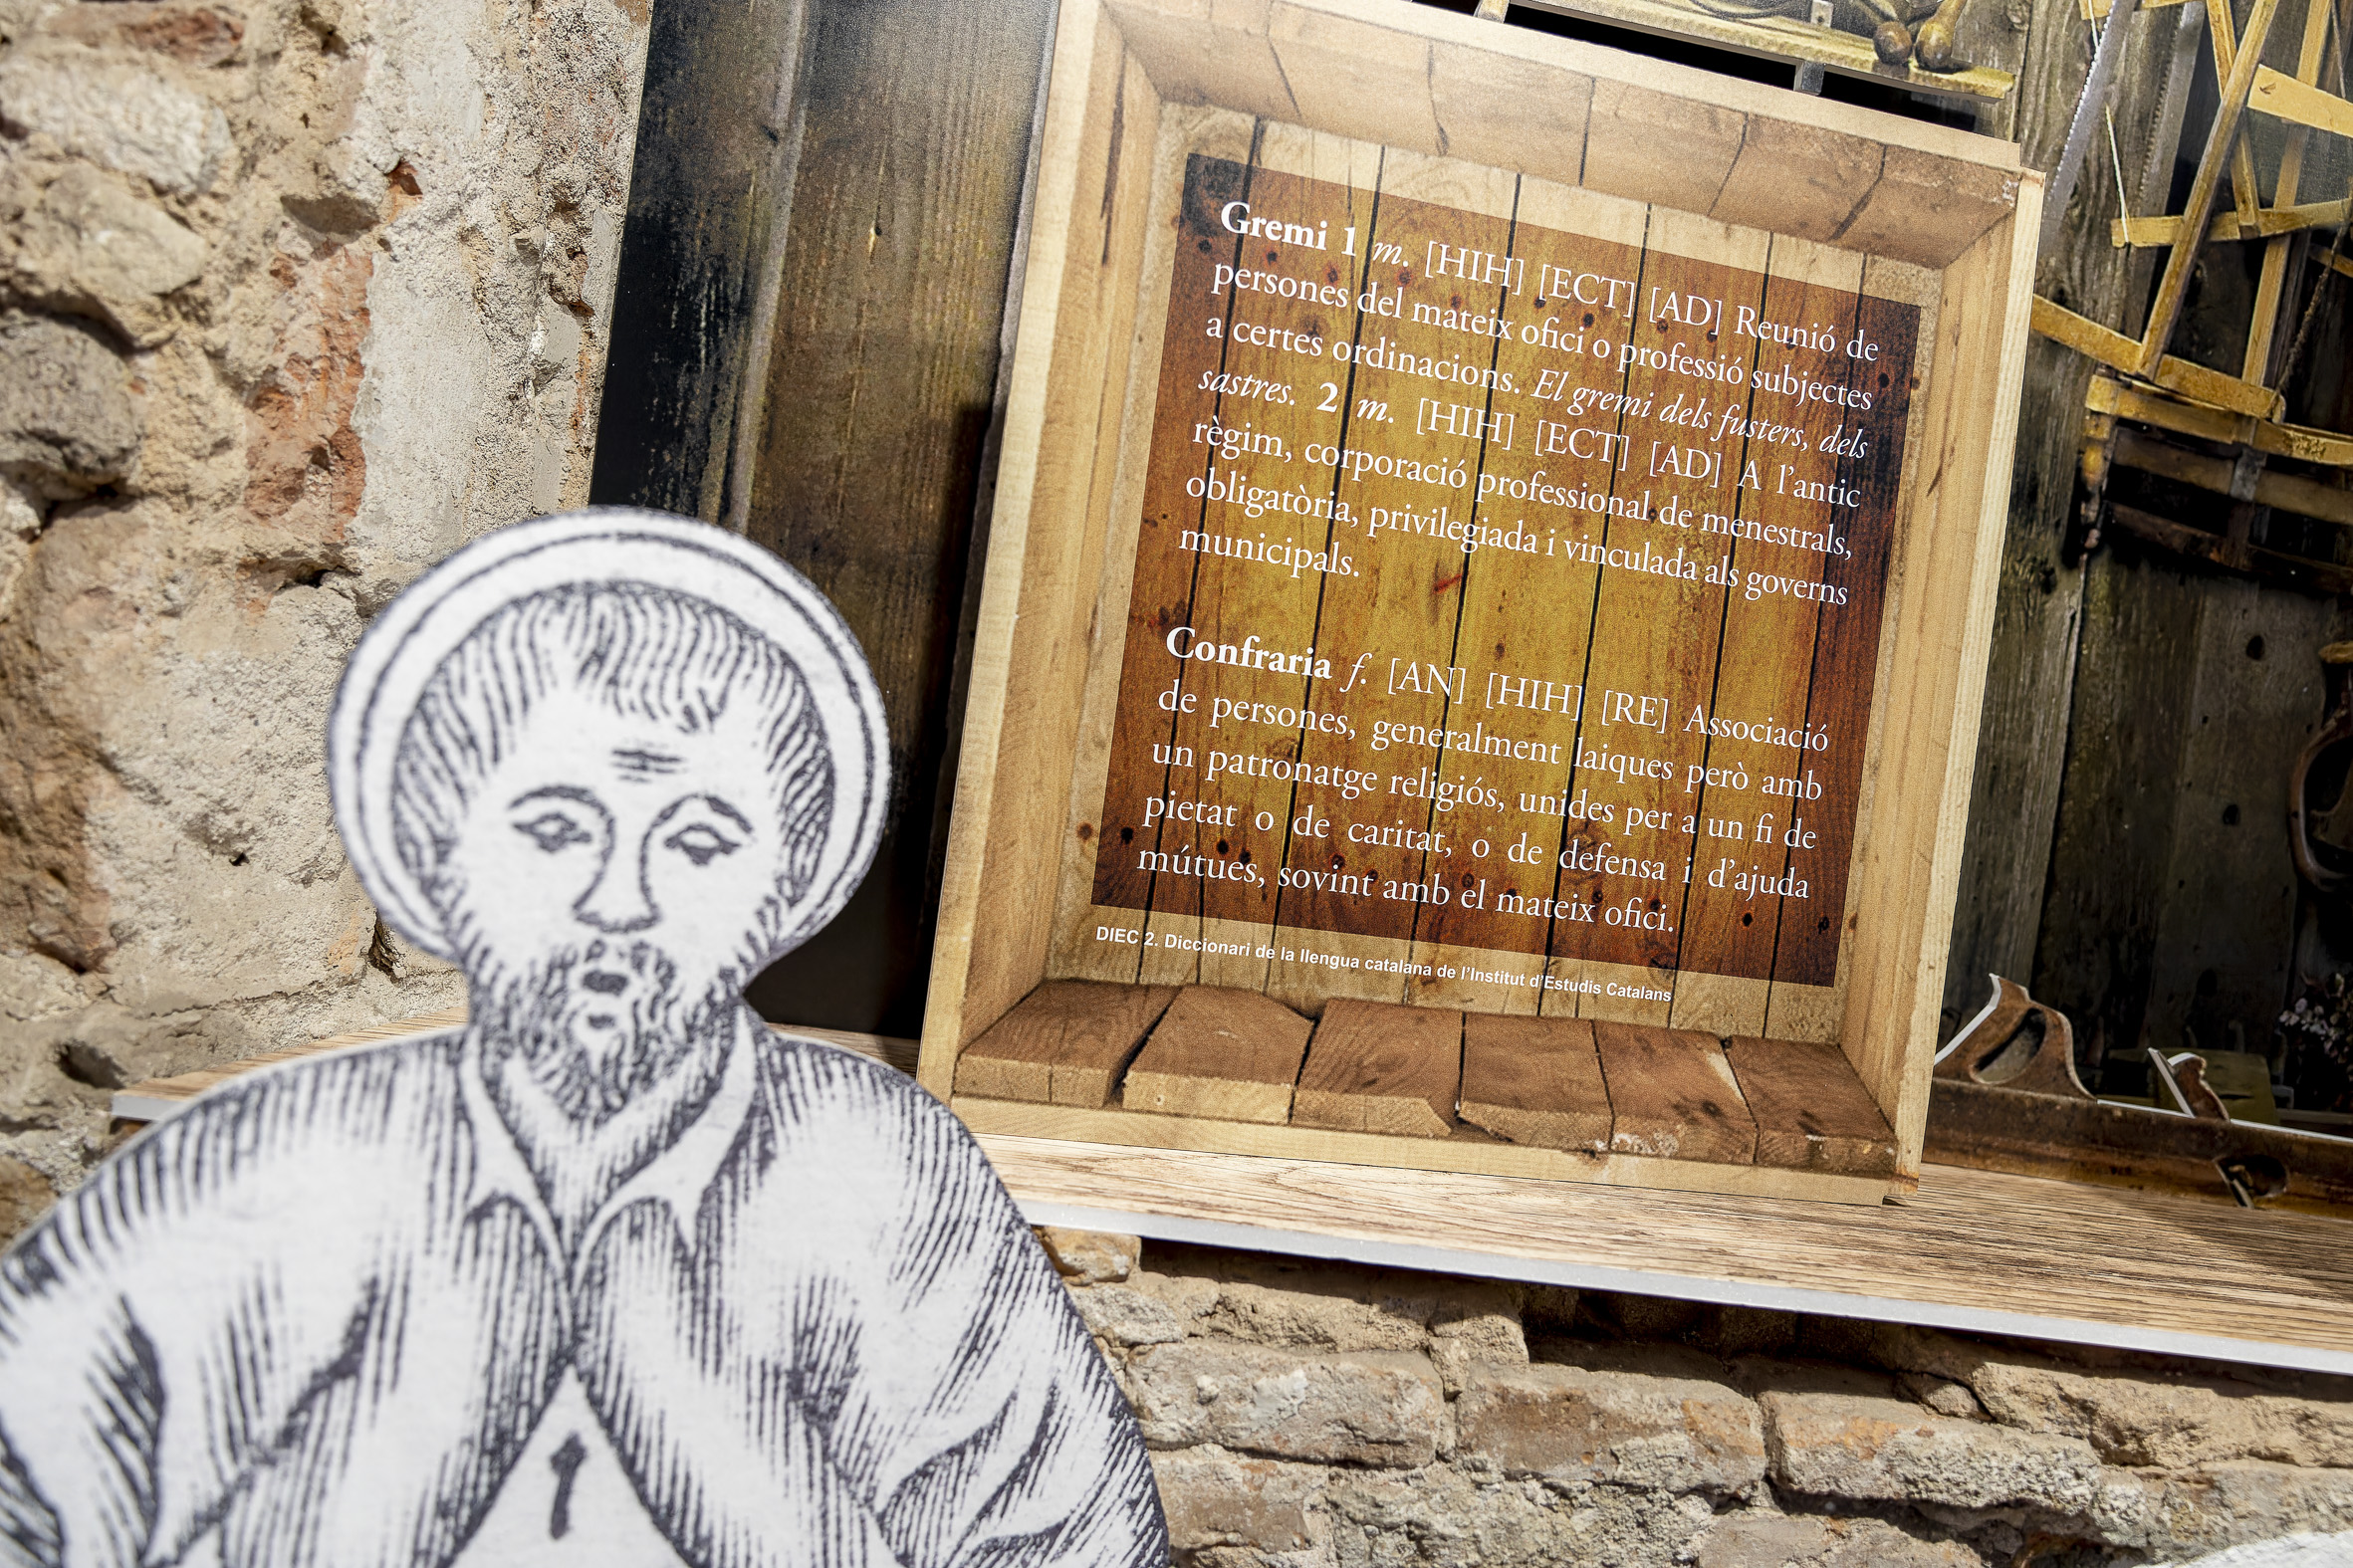 Gremi 1 m. [HIH] [ECT] [AD] Reunió de
persones del mateix ofici o professió subjectes
a certes ordinacions. El gremi dels fusters, dels
sastres. 2 m. [HIH] [ECT] [AD] A l’antic
règim, corporació professional de menestrals,
obligatòria, privilegiada i vinculada als governs
municipals.
Confraria f. [AN] [HIH] [RE] Associació
de persones, generalment laiques però amb
un patronatge religiós, unides per a un fi de
pietat o de caritat, o de defensa i d’ajuda
mútues, sovint amb el mateix ofici.
DIEC 2. Diccionari de la llengua catalana de l’Institut d’Estudis Catalans